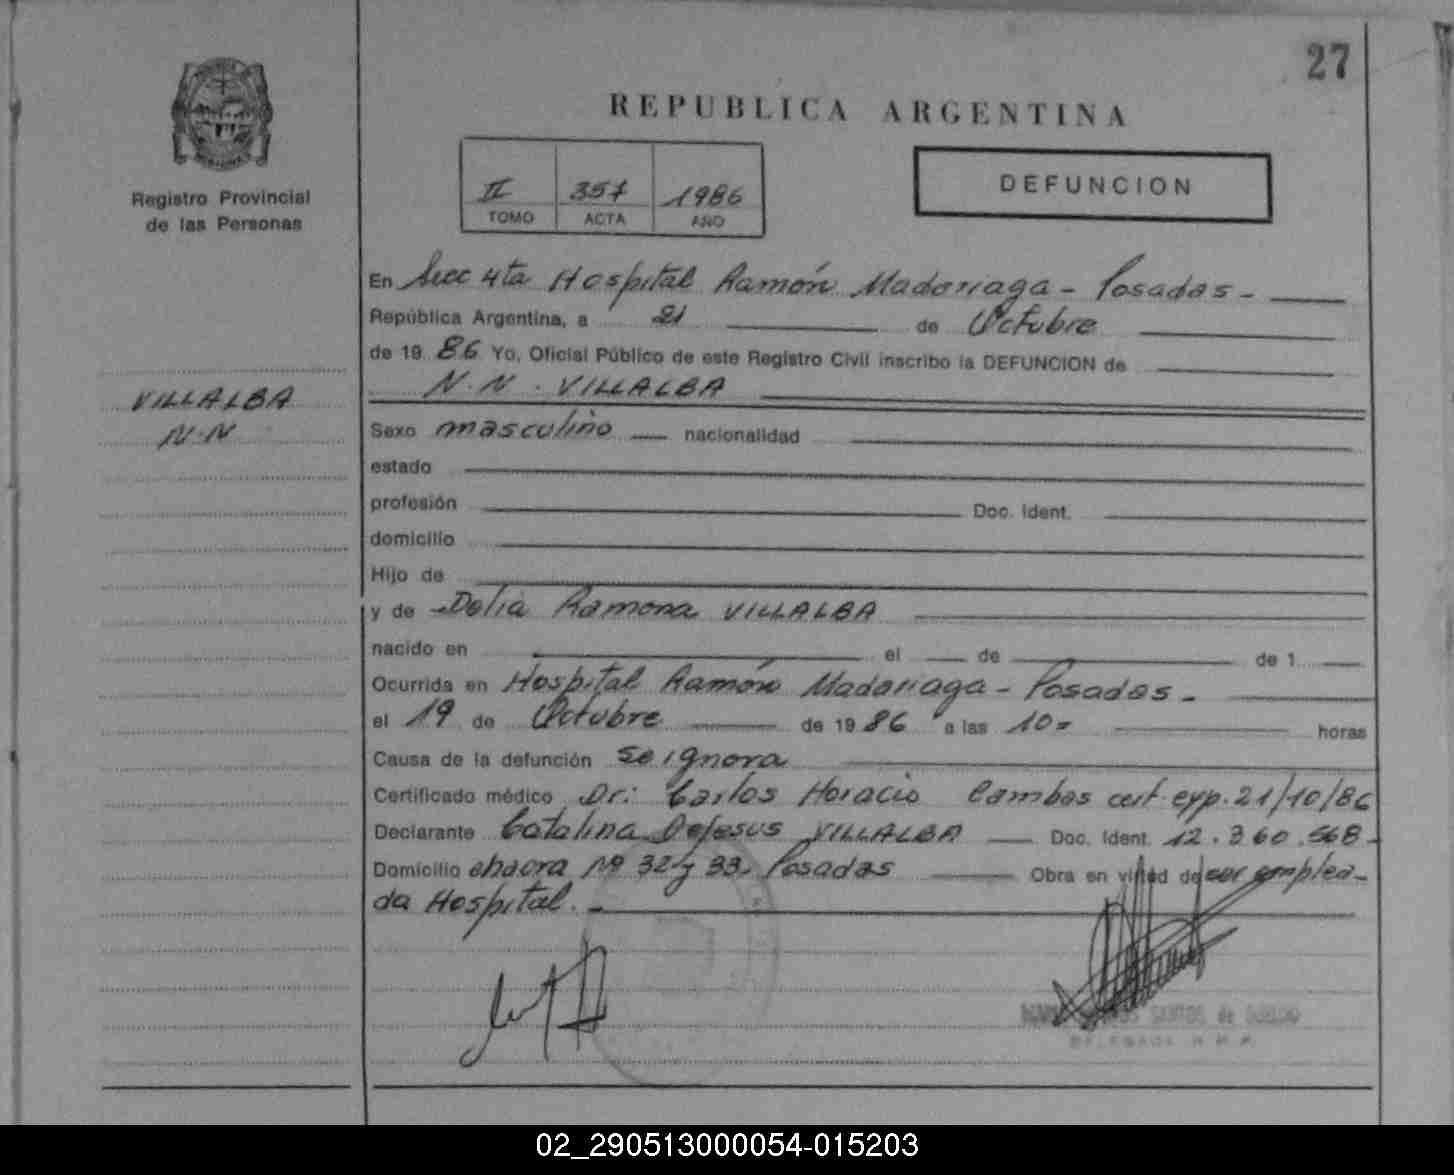 27
REPUBLICA ARGENTINA
Registro Provincial
de las Personas
II 357 1986
TOMO ACTA AÑO
DEFUNCION
En Secc 4ta Hospital Ramón Madariaga - Posadas -
República Argentina, a 21 de Octubre
de 19 86 Yo, Oficial Público de este Registro Civil inscribo la DEFUNCION de
N.N. VILLALBA
VILLALBA
N.N
Sexo masculino nacionalidad
estado
profesión Doc. Ident.
domicilio
Hijo de
y de Delia Ramona VILLALBA
nacido en el de de 1
Ocurrida en Hospital Ramón Madariaga - Posadas -
el 19 de Octubre de 19 86 a las 10= horas
Causa de la defunción se ignora
Certificado médico Dr: Carlos Horacio Cambas cert. exp. 21/10/86
Declarante Catalina Dejesus VILLALBA Doc. Ident. 12.360.568-
Domicilio chacra Nº 32 y 33. Posadas Obra en virtud de ser emplea-
da Hospital. -
SANTOS de
DELEGADA
02_290513000054-015203